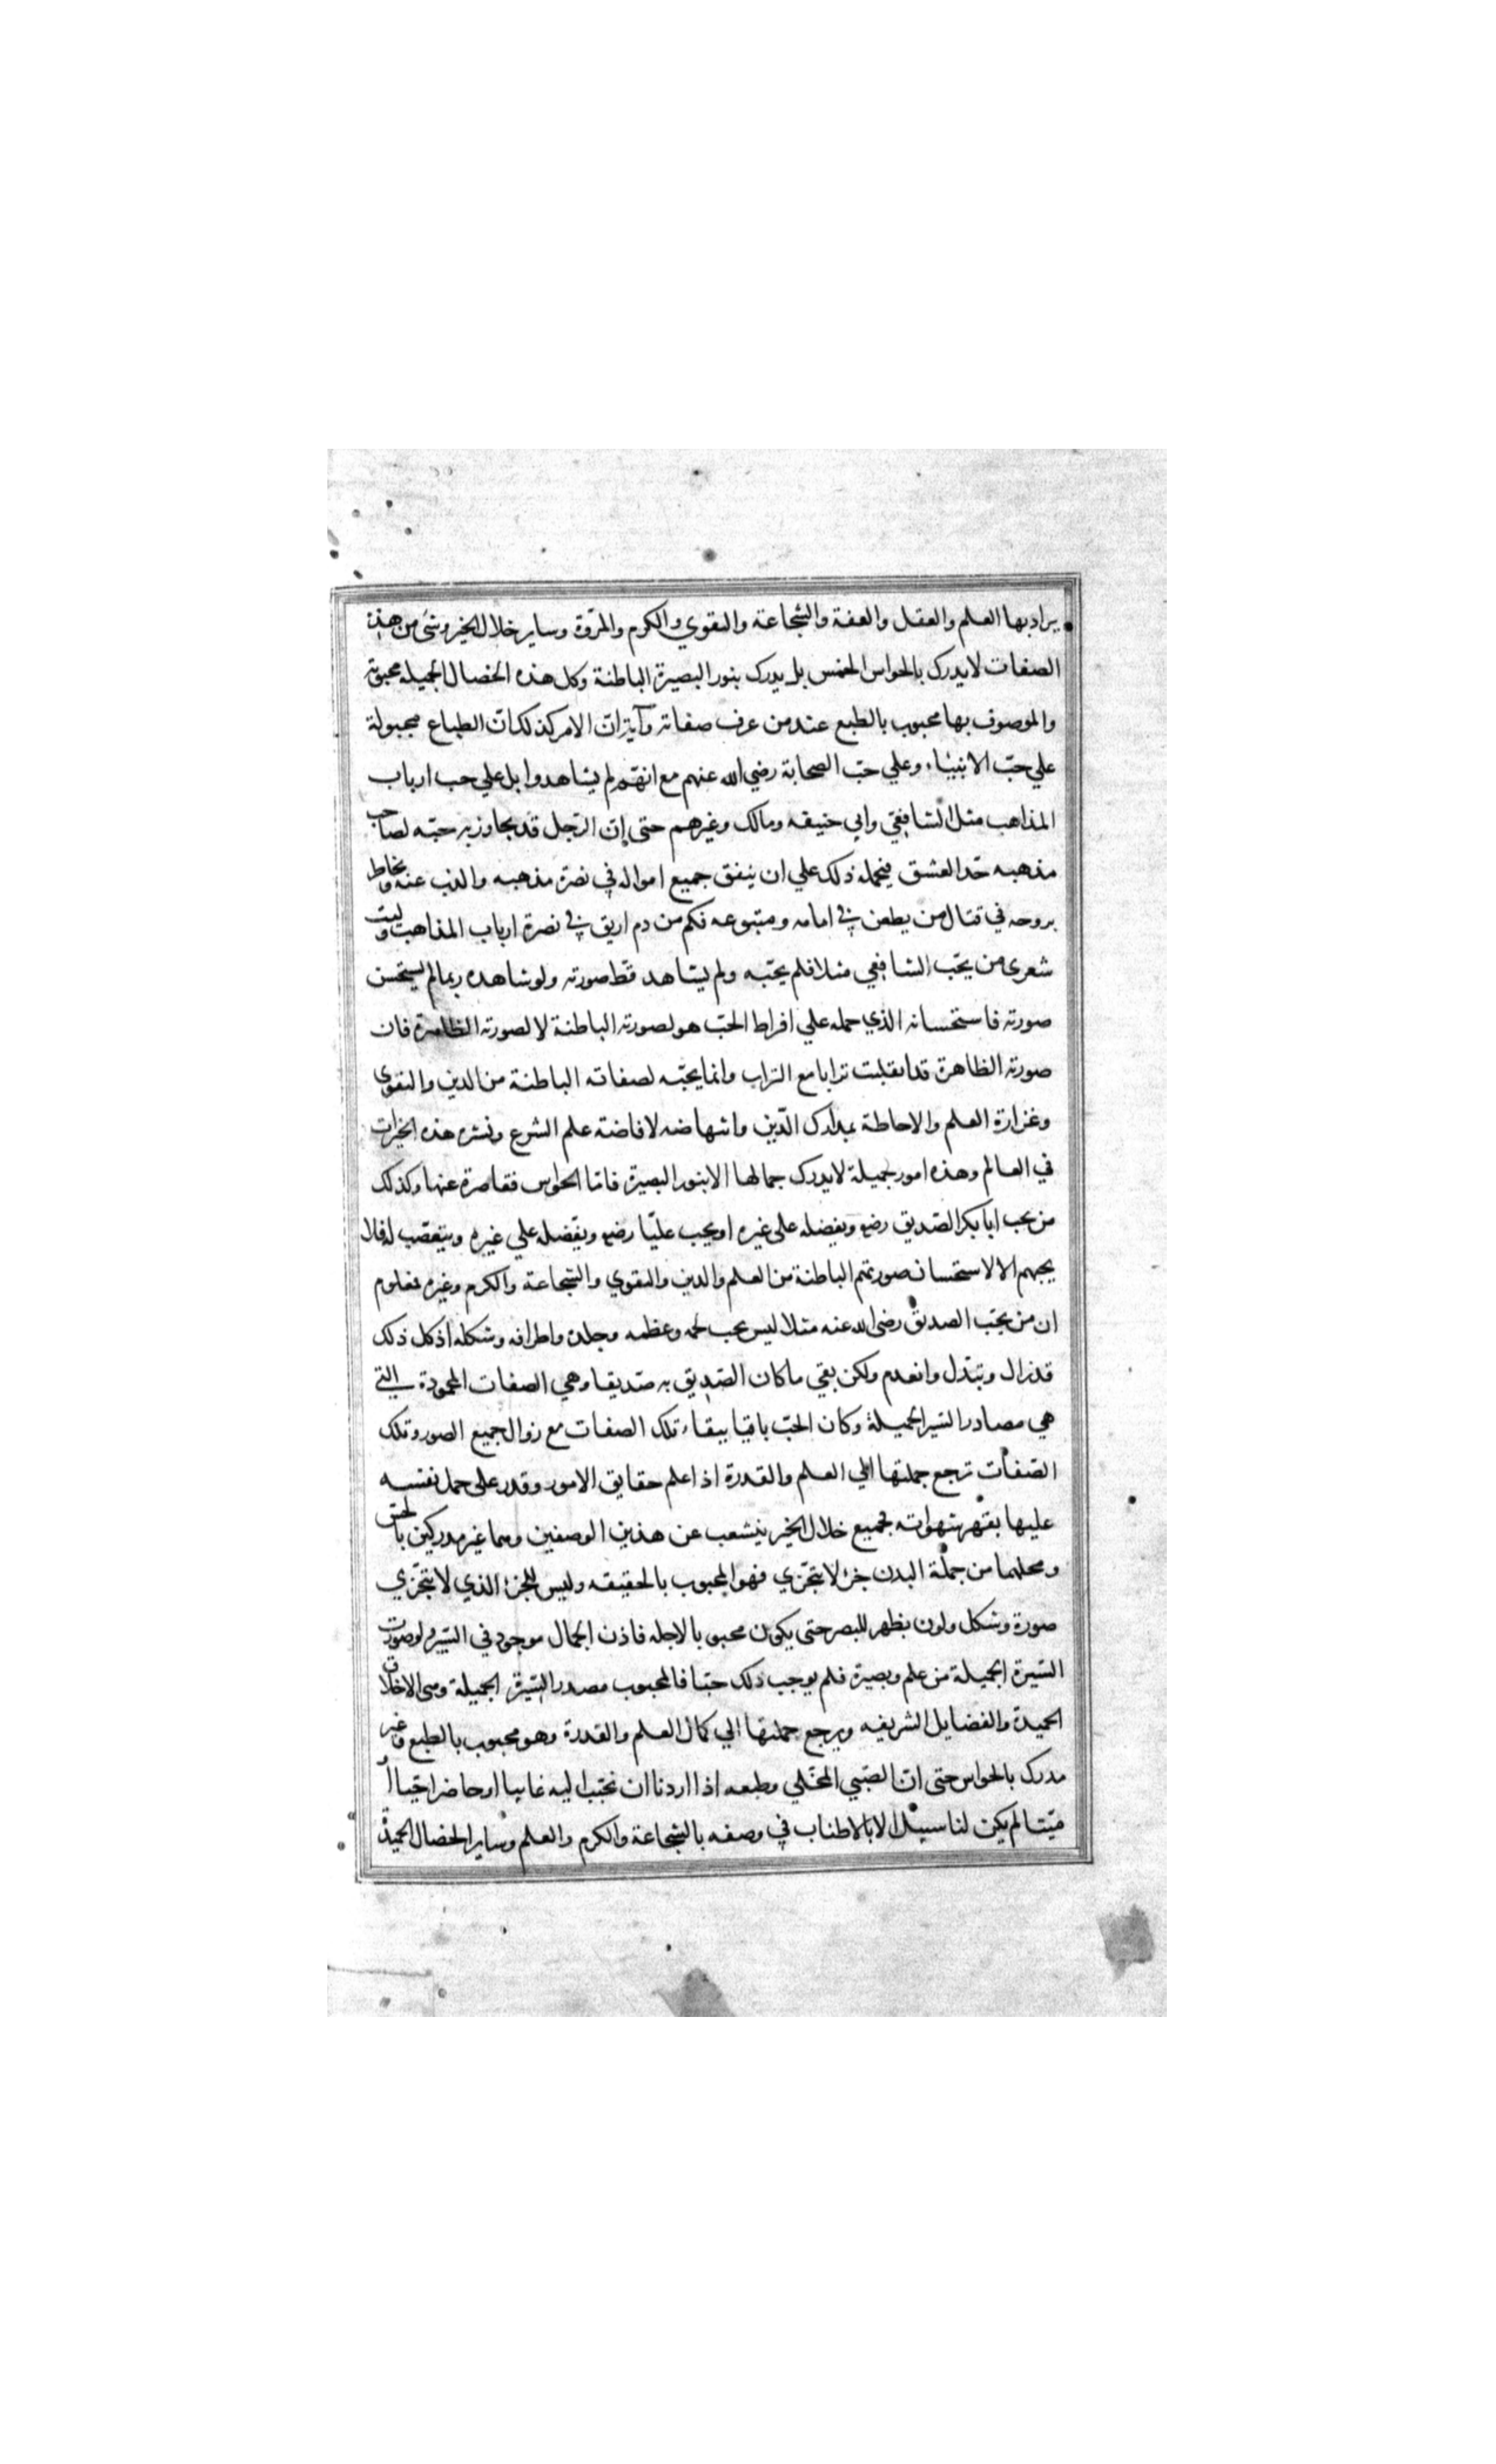 يراد بها العلم والعقل والعفة والشجاعة والتقوي والكرم والمروة وساير خلال الخير وشئ من هذه
الصفات لا يدرك بالحواس الخمس بل يدرك بنور البصيرة الباطنة وكل هذه الخصال الجميله محبوبة
والموصوف بها محبوب بالطبع عند من عرف صفاته وآية ان الامر كذلك ان الطباع مجبولة
علي حبّ الانبياء وعلي حبّ الصحابة رضي الله عنهم مع انهم لم يشاهدوا بل علي حب ارباب
المذاهب مثل الشافعي وابي حنيفه ومالك وغيرهم حتى إن الرّجل قد يجاوز به حبّه لصاحب
مذهبه حدّ العشق فيحمله ذلك علي ان ينفق جميع امواله في نصرة مذهبه والذب عنه ويخاطر
بروحه في قتال من يطعن في امامه ومتبوعه فكم من دم اريق في نصرة ارباب المذاهب وليت
شعرى من يحبّ الشافعي مثلا فلم يحبّه ولم يشاهد قط صورته ولو شاهده ربما لم يستحسن
صورته فاستحسانه الذي حمله علي افراط الحبّ هو لصورته الباطنة لا لصورته الظاهرة فان
صورته الظاهرة قد انقلبت ترابا مع التراب وانما يحبّه لصفاته الباطنة من الدين والتقوى
وغزارة العلم والاحاطة بمدارك الدّين وانتهاضه لافاضة علم الشرع ونشره هذه الخيرات
في العالم وهذه امور جميلة لا يدرك جمالها الا بنور البصيرة فامّا الحواس فقاصرة عنها وكذلك
من يحب ابا بكر الصّديق رضو ويفضله على غيره او يحب عليّا رضو ويفضله علي غيره ويتعصّب له فلا
يحبهم الا لاستحسان صورتهم الباطنة من العلم والدين والتقوي والشّجاعة والكرم وغيره فمعلوم
ان من يحبّ الصديق رضى الله عنه مثلا ليس يحب لحمه وعظمه وجلده واطرافه وشكله اذ كل ذلك
قد زال وتبدّل وانعدم ولكن بقي ما كان الصّديق به صدّيقا وهي الصفات المحمودة التي
هي مصادر السّير الجميلة وكان الحبّ باقيا ببقاء تلك الصفات مع زوال جميع الصور وتلك
الصّفات ترجع جملتها الي العلم والقدرة اذا علم حقايق الامور وقدر على حمل نفسه
عليها بقهر شهواته فجميع خلال الخير يتشعب عن هذين الوصفين وهما غير مدركين بالحس
ومحلهما من جملة البدن جزء لا يتجزي فهو المحبوب بالحقيقه وليس للجزء الذي لا يتجزّي
صورة وشكل ولون يظهر للبصر حتى يكون محبوبا لاجله فاذن الجمال موجود في السّير ولو صدرت
السّيرة الجميلة من علم وبصيرة فلم يوجب ذلك حبّا فالمحبوب مصدر السّيرة الجميلة وهي الاخلاق
الحميدة والفضايل الشريفه ويرجع جملتها الي كمال العلم والقدرة وهو محبوب بالطبع وغير
مدرك بالحواس حتى انّ الصّبي المخلّي وطبعه اذا اردنا ان نحبّب اليه غايبا او حاضرا حيّا أو
ميّتا لم يكن لنا سبيل الا بالاطناب في وصفه بالشّجاعة والكرم والعلم وساير الخصال الحميدة